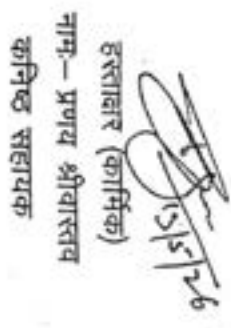 13/5/26
हस्ताक्षर (कार्मिक)
नाम:- प्रणय श्रीवास्तव
कनिष्ठ सहायक